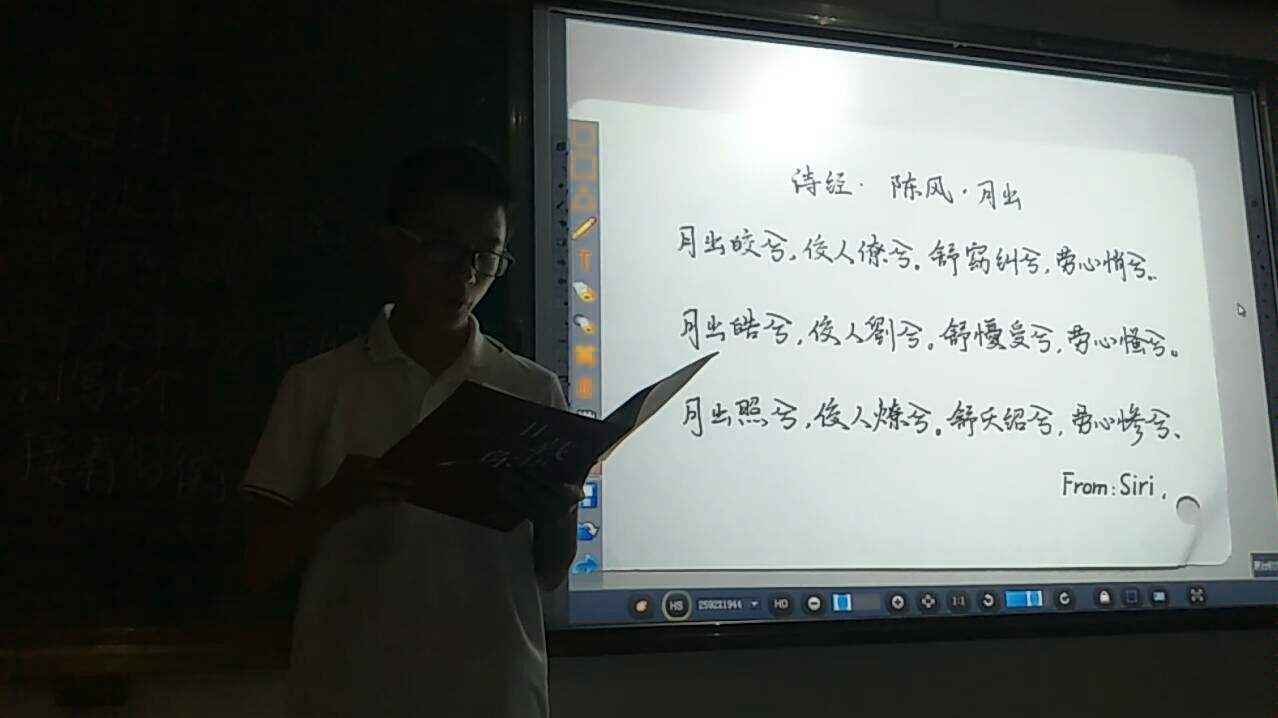 诗经·陈风·月出
月出皎兮,佼人僚兮。舒窈纠兮,劳心悄兮。
月出皓兮,佼人劉兮。舒懮受兮,劳心慅兮。
月出照兮,佼人燎兮。舒夭绍兮,劳心惨兮、
From: Siri.
HS 2592X1944 HD 1:1